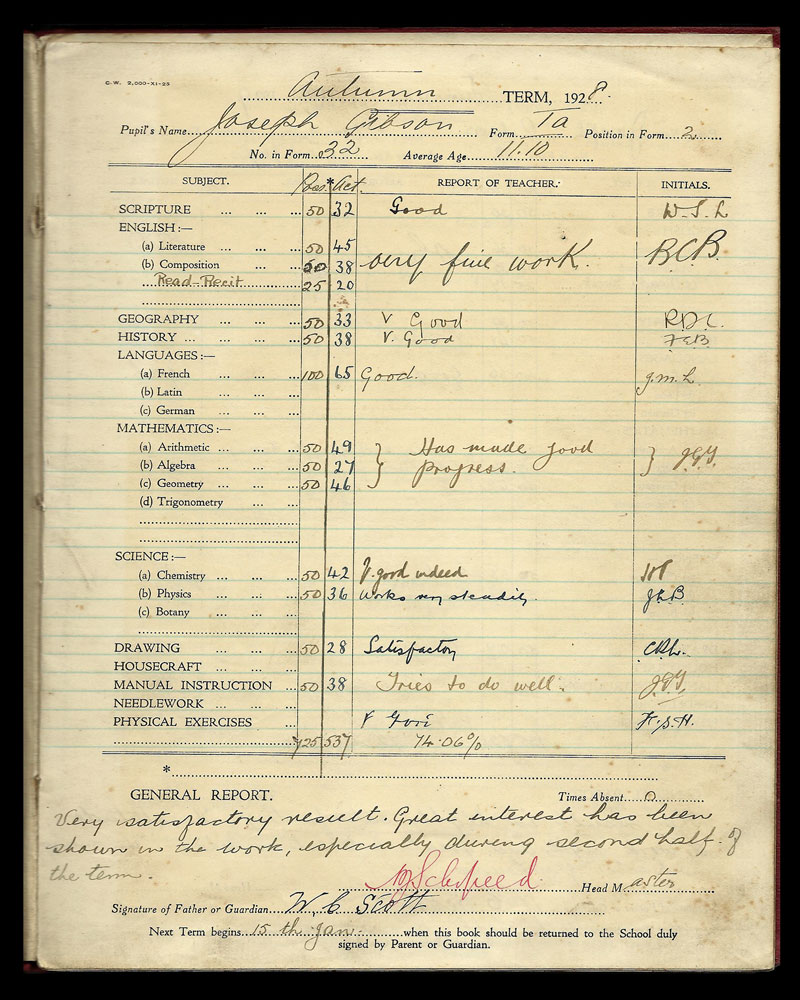 C.W. 2,000-XI-25
Autumn TERM, 1928.
Pupil's Name Joseph Gibson Form 1a Position in Form 2
No. in Form 32 Average Age 11.10
SUBJECT. Poss. * Act. REPORT OF TEACHER. INITIALS.
SCRIPTURE 50 32 Good W.S.L
ENGLISH:—
(a) Literature 50 45
(b) Composition 50 38 very fine work. B.C.B.
Read-Recit 25 20
GEOGRAPHY 50 33 V Good R.D.C.
HISTORY 50 38 V. Good F.E.B.
LANGUAGES:—
(a) French 100 65 Good. J.M.L.
(b) Latin
(c) German
MATHEMATICS:—
(a) Arithmetic 50 49 } Has made good }
(b) Algebra 50 27 progress.
(c) Geometry 50 46
(d) Trigonometry
SCIENCE:—
(a) Chemistry 50 42 V. good indeed
(b) Physics 50 36 Works very steadily.
(c) Botany
DRAWING 50 28 Satisfactory
HOUSECRAFT
MANUAL INSTRUCTION 50 38 Tries to do well.
NEEDLEWORK
PHYSICAL EXERCISES V
725 537 74.06%
*
GENERAL REPORT. Times Absent 0
Very satisfactory result. Great interest has been
shown in the work, especially during second half of
the term.
Head Master
Signature of Father or Guardian W. C Scott
Next Term begins 15th Jan. when this book should be returned to the School duly
signed by Parent or Guardian.